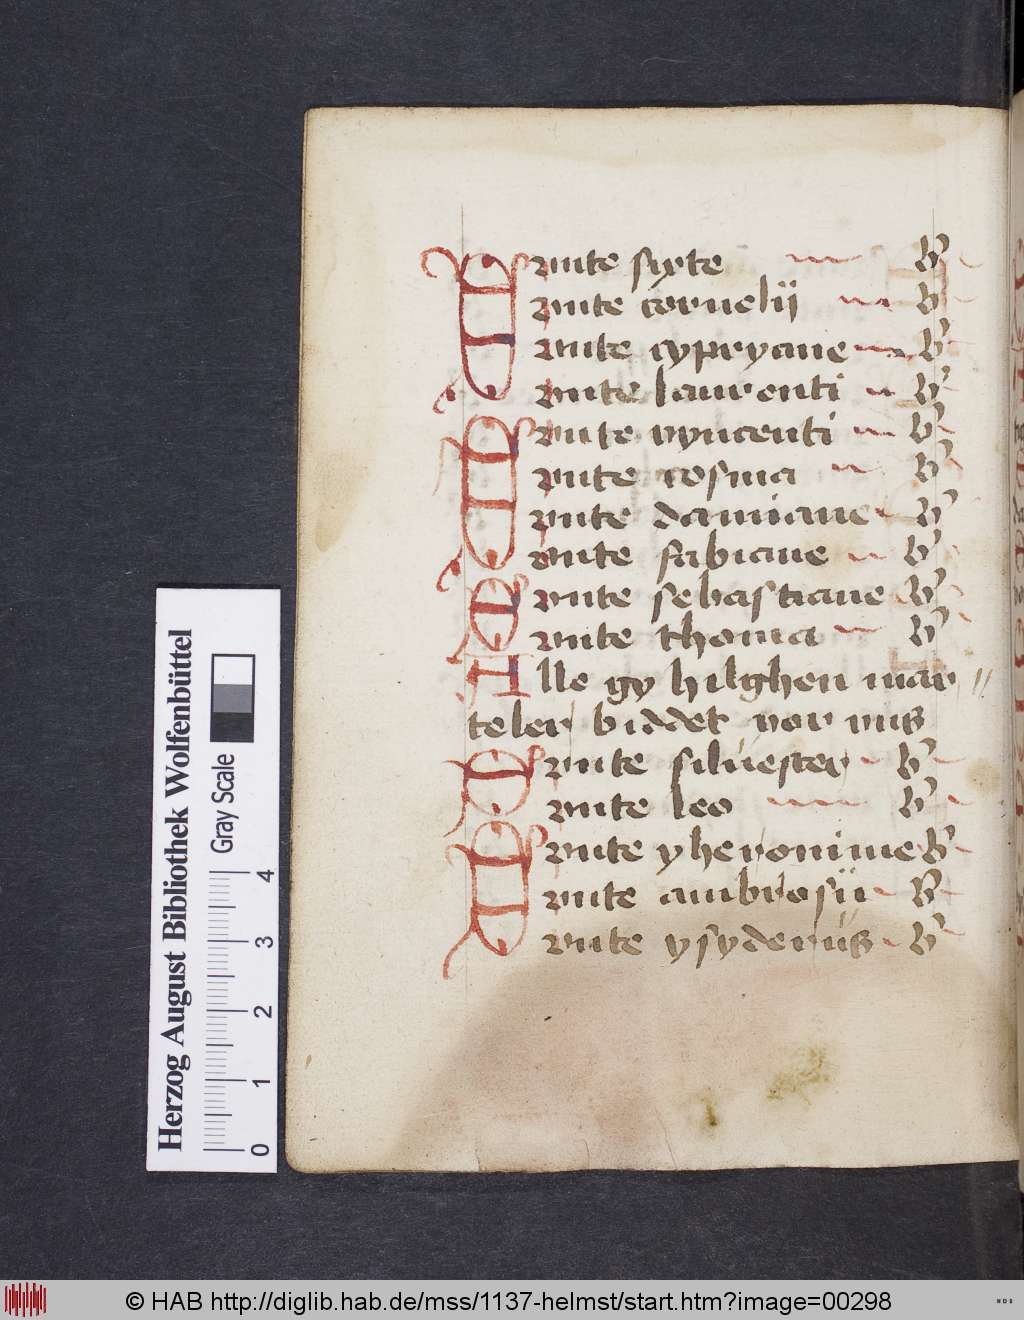 Sunte sixte B
Sunte cornelij B
Sunte cypryane B
Sunte laurenti B
Sunte vyncenti B
Sunte cosma B
Sunte damiane B
Sunte fabiane B
Sunte sebastiane B
Sunte thoma B
Alle gy hilghen mar
teler biddet vor uns
Sunte siluester B
Sunte leo B
Sunte yheronime B
Sunte ambrosii B
Sunte ysyderus B
Herzog August Bibliothek Wolfenbüttel
Gray Scale
0 1 2 3 4
© HAB http://diglib.hab.de/mss/1137-helmst/start.htm?image=00298